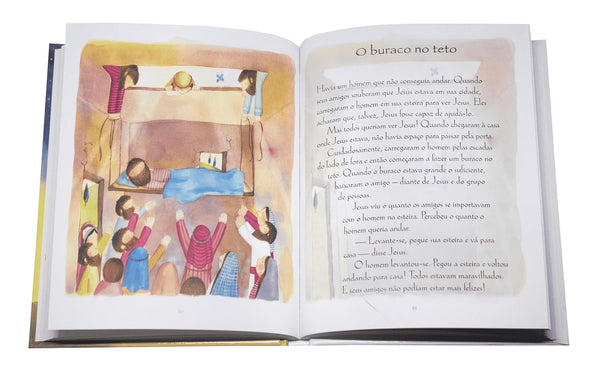 O buraco no teto
Havia um homem que não conseguia andar. Quando
seus amigos souberam que Jesus estava em sua cidade,
carregaram o homem em sua esteira para ver Jesus. Eles
acharam que, talvez, Jesus fosse capaz de ajudá-lo.
Mas todos queriam ver Jesus! Quando chegaram à casa
onde Jesus estava, não havia espaço para passar pela porta.
Cuidadosamente, carregaram o homem pelas escadas
do lado de fora e então começaram a fazer um buraco no
teto. Quando o buraco estava grande o suficiente,
baixaram o amigo — diante de Jesus e do grupo
de pessoas.
Jesus viu o quanto os amigos se importavam
com o homem na esteira. Percebeu o quanto o
homem queria andar.
— Levante-se, pegue sua esteira e vá para
casa — disse Jesus.
O homem levantou-se. Pegou a esteira e voltou
andando para casa! Todos estavam maravilhados.
E seus amigos não podiam estar mais felizes!